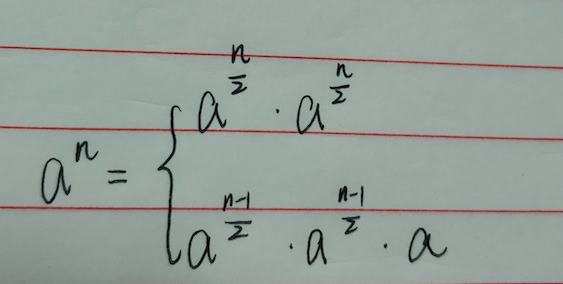 a^n = { a^{n/2} · a^{n/2}
a^{(n-1)/2} · a^{(n-1)/2} · a